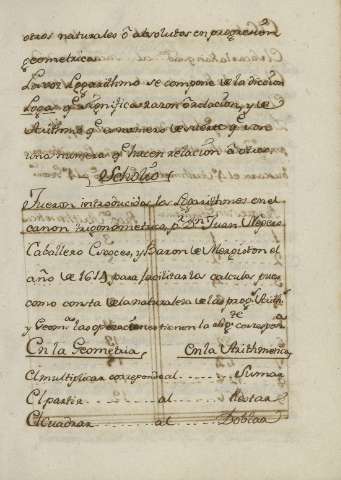 otros naturales ó absolutos en progresion
geometrica.
La voz Logarithmo se compone de la diccion
Logos, q.e significa razon ó relacion, y de
Arithmo q.e es numero de suerte q.e son
unos numeros q.e hacen relacion á otros.
Scholio
Fueron introducidos los Logarithmos en el
canon trigonometrico, p.r Dn Juan Nepero
Caballero Escoces, y Baron de Merquiston el
año de 1614 para facilitar los calculos pues
como consta de la naturaleza de las prog.s Arith.
y Geom.as las operaciones tienen la sig.te correspon.a
En la Geometria En la Arithmetica
El multiplicar corresponde al Sumar
El partir al Restar
El Cuadrar al Doblar